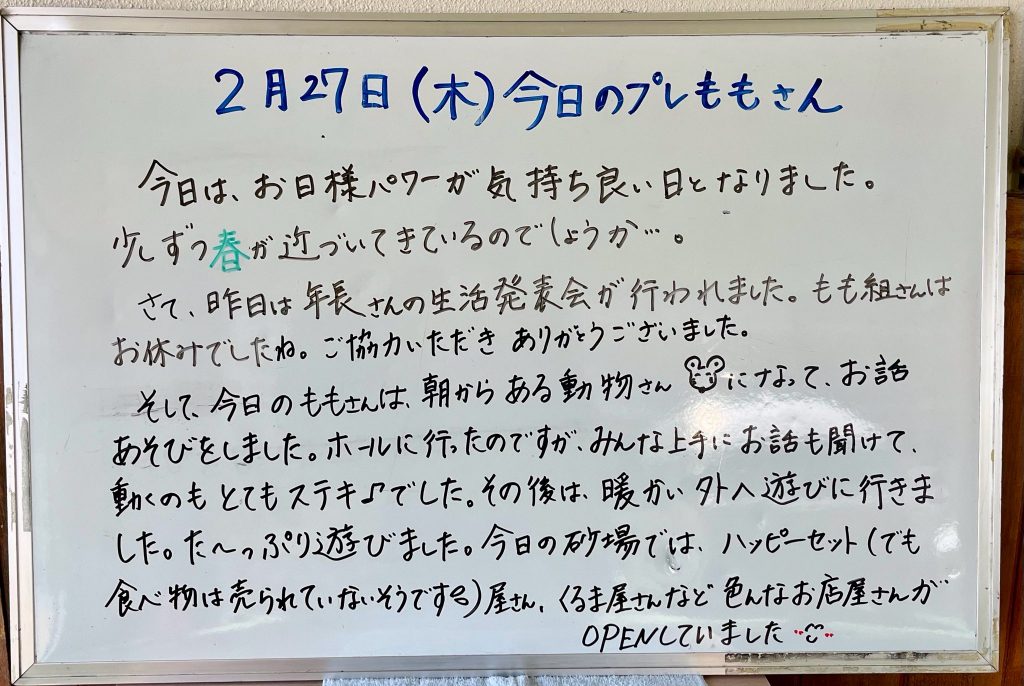 2月27日(木)今日のプレももさん
今日は、お日様パワーが気持ち良い日となりました。
少しずつ春が近づいてきているのでしょうか…。
さて、昨日は年長さんの生活発表会が行われました。もも組さんは
お休みでしたね。ご協力いただきありがとうございました。
そして、今日のももさんは、朝からある動物さんになって、お話
あそびをしました。ホールに行ったのですが、みんな上手にお話も聞けて、
動くのもとてもステキ♪でした。その後は、暖かい外へ遊びに行きま
した。た〜っぷり遊びました。今日の砂場では、ハッピーセット(でも
食べ物は売られていないそうです)屋さん、くるま屋さんなど色んなお店屋さんが
OPENしていました